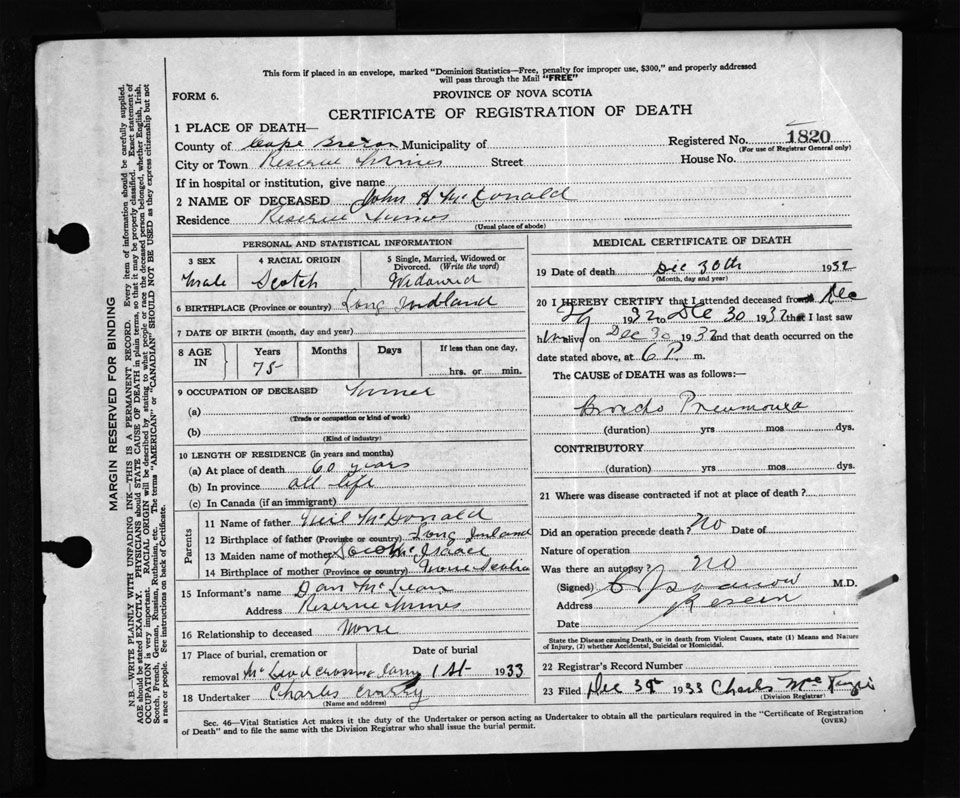 This form if placed in an envelope, marked "Dominion Statistics—Free, penalty for improper use, $300," and properly addressed
will pass through the Mail "FREE"
FORM 6.
PROVINCE OF NOVA SCOTIA
CERTIFICATE OF REGISTRATION OF DEATH
1 PLACE OF DEATH—
County of Cape Breton Municipality of
Registered No. 1820
(For use of Registrar General only)
City or Town Reserve Mines Street House No.
If in hospital or institution, give name
2 NAME OF DECEASED John H McDonald
Residence Reserve Mines
(Usual place of abode)
PERSONAL AND STATISTICAL INFORMATION
3 SEX 4 RACIAL ORIGIN 5 Single, Married, Widowed or
Divorced. (Write the word)
Male Scotch Widowed
6 BIRTHPLACE (Province or country) Long
7 DATE OF BIRTH (month, day and year)
8 AGE IN Years Months Days If less than one day,
75 hrs. or min.
9 OCCUPATION OF DECEASED Miner
(a)
(Trade or occupation or kind of work)
(b)
(Kind of industry)
10 LENGTH OF RESIDENCE (in years and months)
(a) At place of death 60 years
(b) In province all life
(c) In Canada (if an immigrant)
Parents
11 Name of father Neil McDonald
12 Birthplace of father (Province or country) Long
13 Maiden name of mother McIsaac
14 Birthplace of mother (Province or country) Nova Scotia
15 Informant's name Dan McLean
Address Reserve Mines
16 Relationship to deceased None
17 Place of burial, cremation or Date of burial
removal Jany 1st 1933
18 Undertaker Charles Crosby
(Name and address)
MEDICAL CERTIFICATE OF DEATH
19 Date of death Dec 30th 1932
(Month, day and year)
20 I HEREBY CERTIFY that I attended deceased from Dec
1932 to Dec 30 1932 that I last saw
him alive on Dec 30 1932 and that death occurred on the
date stated above, at 6 P. m.
The CAUSE of DEATH was as follows:—
Broncho Pneumonia
(duration) yrs mos dys.
CONTRIBUTORY
(duration) yrs mos dys.
21 Where was disease contracted if not at place of death?
Did an operation precede death? No Date of
Nature of operation
Was there an autopsy? No
(Signed) M.D.
Address
Date
State the Disease causing Death, or in death from Violent Causes, state (1) Means and Nature
of Injury, (2) whether Accidental, Suicidal or Homicidal.
22 Registrar's Record Number
23 Filed Dec 1933 Charles McKenzie
(Division Registrar)
Sec. 46—Vital Statistics Act makes it the duty of the Undertaker or person acting as Undertaker to obtain all the particulars required in the "Certificate of Registration
of Death" and to file the same with the Division Registrar who shall issue the burial permit. (OVER)
MARGIN RESERVED FOR BINDING
N.B.—WRITE PLAINLY WITH UNFADING INK—THIS IS A PERMANENT RECORD. Every item of information should be carefully supplied.
AGE should be stated EXACTLY. PHYSICIANS should STATE CAUSE OF DEATH in plain terms, so that it may be properly classified. Exact statement of
OCCUPATION is very important. RACIAL ORIGIN will be described by stating to what people or race the deceased person belonged, whether English, Irish,
Scotch, French, German, Russian, Ruthenian, etc. The terms "AMERICAN" or "CANADIAN" SHOULD NOT BE USED as they express citizenship but not
a race or people. See instructions on back of Certificate.